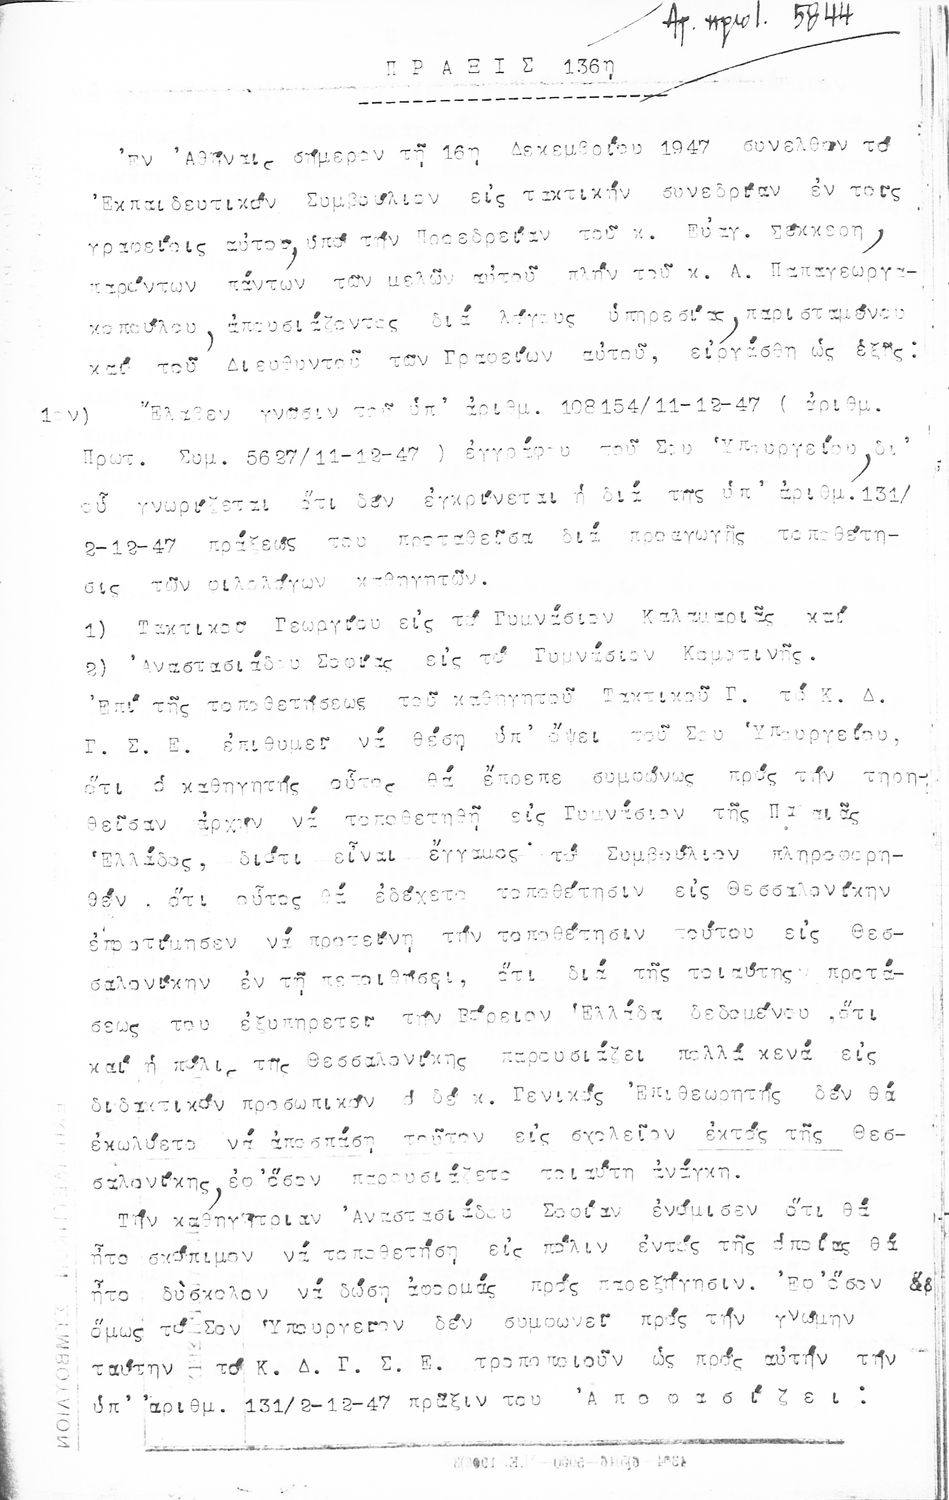 Αρ. πρωτ. 5844
ΠΡΑΞΙΣ 136η
Ἐν Ἀθήναις σήμερον τῇ 16η Δεκεμβρίου 1947 συνελθόν τό
Ἐκπαιδευτικόν Συμβούλιον εἰς τακτικήν συνεδρίαν ἐν τοῖς
γραφείοις αὐτοῦ, ὑπό τήν Προεδρείαν τοῦ κ. Εὐαγ. Σέκκερη,
παρόντων πάντων τῶν μελῶν αὐτοῦ πλήν τοῦ κ. Α. Παπαγεωργα-
κοπούλου, ἀπουσιάζοντος διά λόγους ὑπηρεσίας, παρισταμένου
καί τοῦ Διευθυντοῦ τῶν Γραφείων αὐτοῦ, εἰργάσθη ὡς ἑξῆς:
1ον) Ἔλαβεν γνῶσιν τοῦ ὑπ' ἀριθμ. 108154/11-12-47 ( ἀριθμ.
Πρωτ. Συμ. 5627/11-12-47 ) ἐγγράφου τοῦ Σου Ὑπουργείου, δι'
οὗ γνωρίζεται ὅτι δέν ἐγκρίνεται ἡ διά τῆς ὑπ' ἀριθμ. 131/
2-12-47 πράξεώς του προταθεῖσα διά προαγωγῆς τοποθέτη-
σις τῶν φιλολόγων καθηγητῶν.
1) Τακτικοῦ Γεωργίου εἰς τό Γυμνάσιον Καλαμαριᾶς καί
2) Ἀναστασιάδου Σοφίας εἰς τό Γυμνάσιον Κομοτινῆς.
Ἐπί τῆς τοποθετήσεως τοῦ καθηγητοῦ Τακτικοῦ Γ. τό Κ. Δ.
Γ. Σ. Ε. ἐπιθυμεῖ νά θέσῃ ὑπ' ὄψει τοῦ Σου Ὑπουργείου,
ὅτι ὁ καθηγητής οὗτος θά ἔπρεπε συμφώνως πρός τήν τηρη-
θεῖσαν ἀρχήν νά τοποθετηθῇ εἰς Γυμνάσιον τῆς Παλαιᾶς
Ἑλλάδος, διότι εἶναι ἔγγαμος· τό Συμβούλιον πληροφορη-
θέν . ὅτι οὗτος θά ἐδέχετο τοποθέτησιν εἰς Θεσσαλονίκην
ἐπροτίμησεν νά προτείνῃ τήν τοποθέτησιν τούτου εἰς Θεσ-
σαλονίκην ἐν τῇ πεποιθήσει, ὅτι διά τῆς τοιαύτης προτά-
σεως του ἐξυπηρετεῖ τήν Βόρειον Ἑλλάδα δεδομένου ,ὅτι
καί ἡ πόλις τῆς Θεσσαλονίκης παρουσιάζει πολλά κενά εἰς
διδακτικόν προσωπικόν ὁ δέ κ. Γενικός Ἐπιθεωρητής δέν θά
ἐκωλύετο νά ἀποσπάσῃ τοῦτον εἰς σχολεῖον ἐκτός τῆς Θεσ-
σαλονίκης, ἐφ'ὅσον παρουσιάζετο τοιαύτη ἀνάγκη.
Τήν καθηγήτριαν Ἀναστασιάδου Σοφίαν ἐνόμισεν ὅτι θά
ἦτο σκόπιμον νά τοποθετήσῃ εἰς πόλιν ἐντός τῆς ὁποίας θά
ἦτο δύσκολον νά δώσῃ ἀφορμάς πρός παρεξήγησιν. Ἐφ'ὅσον
ὅμως τό Σον Ὑπουργεῖον δέν συμφωνεῖ πρός τήν γνώμην
ταύτην τό Κ. Δ. Γ. Σ. Ε. τροποποιοῦν ὡς πρός αὐτήν τήν
ὑπ' ἀριθμ. 131/2-12-47 πρᾶξιν του Ἀποφασίζει: